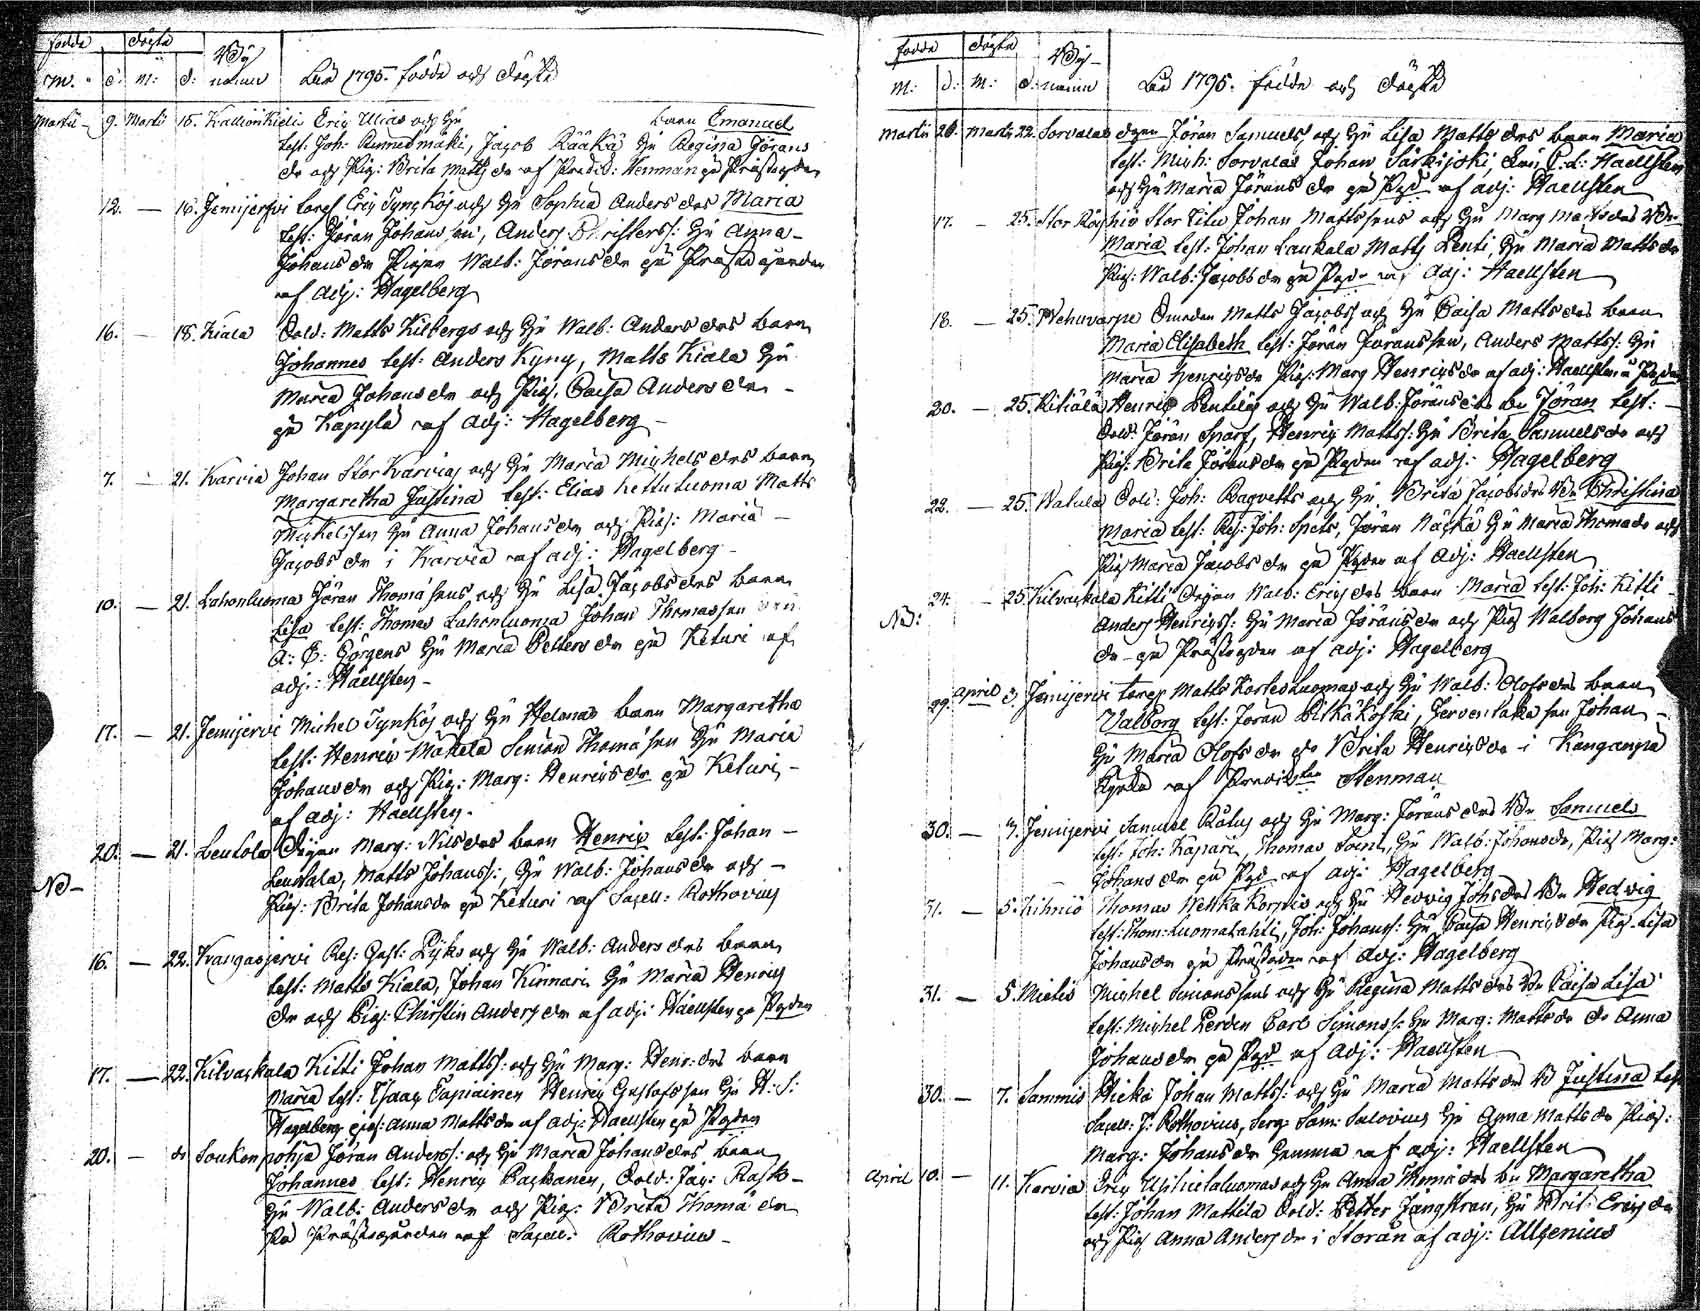 födde döpta By
M. d: M: d: namn Åhr 1795. födde och döpte
Martii 9. Martii 15. Kallionkieli Eric Ulias och Hu barn Emanuel
test: Joh: Jacob Rääkä Hu Regina Görans
dr och Pig: Brita Matts dr af Predik: Stenman på Prästegården
12. — 18. Jemijerfvi torp: Eric Tynkkös och Hu Sophia Anders drs Maria
test: Jöran Johansson, Anders Christers: Hu Anna
Johans dr Pigan Walb: Jörans dr på Prästegården
af Adj: Hagelberg
16. — 18. Kiala Sold: Matts Kilbergs och Hu Walb: Anders drs barn
Johannes test: Anders Kyny, Matts Kiala Hu
Maria Johans dr och Pig. Caisa Anders dr
på Käpylä af Adj: Hagelberg
7. — 21. Karvia Johan Stor Karvias och Hu Maria Michels drs barn
Margaretha Justina test: Elias Kettuluoma Matts
Mickelsson Hu Anna Johans dr och Pig: Maria
Jacobs dr i Karvia af adj: Hagelberg
10. — 21. Lahonluoma Jöran Thomæ sons och Hu Lisa Jacobs drs barn
Lisa test: Thomas Lahonluoma Johan Thomasson
A: C: Görgens Hu Maria Petters dr på Keturi af
adj: Haellsten
17. — 21. Jemijervi Michel Tynkkös och Hu Helenas barn Margaretha
test: Henric Mäkelä Simon Thomæ son Hu Maria
Johans dr och Pig: Marg: Henrics dr på Keturi
af adj: Haellsten.
20. — 21. Leutola Pigan Marg: Nils drs barn Henric test: Johan
Leutala, Matts Johanss:, Hu Walb: Johans dr och
NB Pig: Brita Johans dr på Keturi af Sacell: Rothovius
16. — 22. Kangasjervi Res: Gast: Pyks och Hu Walb: Anders drs barn
test: Matts Kiala, Johan Kinnari Hu Maria Henrics
dr och Pig: Christin Anders dr af adj: Haellsten på Pgden
17. — 22. Kilvaskala Kitti Johan Matts: och Hu Marg: Henr: drs barn
Maria test: Isaac Tapiainen Henric Gustafsson Hu H: S:
Hagelberg pig: Anna Matts dr af adj: Haellsten på Pgden
20. — dr Soukonpohja Jöran Anders: och Hu Maria Johans drs barn
Johannes test: Henric Paskanen, Sold: Jac: Rask
Hu Walb: Anders dr och Pig: Brita Thomæ dr
På Prästegården af Sacell: Rothovius
födde döpta By
M: d: M: d: namn Åhr 1795. födde och döpte
Martii 20. Martii 22. Sorvalas Jöran Samuels och Hu Lisa Matts drs barn Maria
test: Mich: Sorvalas Johan Särkijoki, P. L: Haellsten
och Hu Maria Jörans dr på Pgd af adj: Haellsten
17. — 25. Stor Röyhiö Stor Titu Johan Mattssons och Hu Marg Matts drs Bn
Maria test: Johan Laukala Matts Penti, Hu Maria Matts dr
Pig: Walb: Jacobs dr på Pgdn af Adj: Haellsten
18. — 25. Vehuvarpe Matts Jacobs: och Hu Caisa Matts drs barn
Maria Elisabeth test: Jöran Jöransson, Anders Matts: Hu
Maria Henrics dr Pig: Marg Henrics dr af adj: Haellsten å Pgden
20. — 25. Kitiälä Henric Pentiläs och Hu Walb: Jörans drs bn Jöran test:
Sold: Jöran Sparf, Henric Matts: Hu Brita Samuels dr och
Pig: Brita Jörans dr på Pgden af adj: Hagelberg
22. — 25. Watula Sold: Joh: Bagvetts och Hu Brita Jacobs drs Bn Christina
Maria test: Res: Joh: Spets, Jöran Näckä Hu Maria Thomæ dr och
Pig Maria Jacobs dr på Pgden af Adj: Haellsten
24. — 25. Kilvaskala Kitti Pigan Walb: Erics drs barn Maria test: Joh: Kitti
NB: Anders Henrics: Hu Maria Jörans dr och Pig Walborg Johans
dr på Prästegden af adj: Hagelberg
29. April 3. Jemijervi torp: Matts Kortesluomas och Hu Walb: Olofs drs barn
Valborg test: Jöran Pitkäkoski, Jerventaka son Johan
Hu Maria Olofs dr Brita Henrics dr i Kanganpä
Kyrka af Predik: Stenman
30. — 3. Jemijervi Samuel Rätys och Hu Marg: Jörans drs Bn Samuel
test: Joh: Kapari, Thomas Soini, Hu Walb: Johans dr, Pig Marg:
Johans dr på Pgd af adj: Hagelberg
31. — 5. Kihniö Thomas Nettkä Korpis och Hu Hedvig Johs drs Bn Hedvig
test: Thom: Luomalahti, Joh: Johans: Hu Caisa Henrics dr Pig: Lisa
Johans dr på Prästgden af Adj: Hagelberg
31. — 5. Mietis Michel Simons sons och Hu Regina Matts drs Bn Caisa Lisa
test: Michel Perden Carl Simons: Hu Marg: Matts dr dr Anna
Johans dr på Pgd af Adj: Haellsten
30. — 7. Sammis Hicka Johan Matts: och Hu Maria Matts drs B Justina test
Sacell: J: Rothovius, Serg: Sam: Salovius Hu Anna Matts dr Pig:
Marg: Johans dr Hemma af adj: Haellsten
April 10. — 11. Karvia Eric och Hu Anna Thomæ drs bn Margaretha
test: Johan Mattila Sold: Petter Ljungstrau, Hu Brit: Erics dr
och Pig Anna Anders dr i Storån af adj: Allgenius